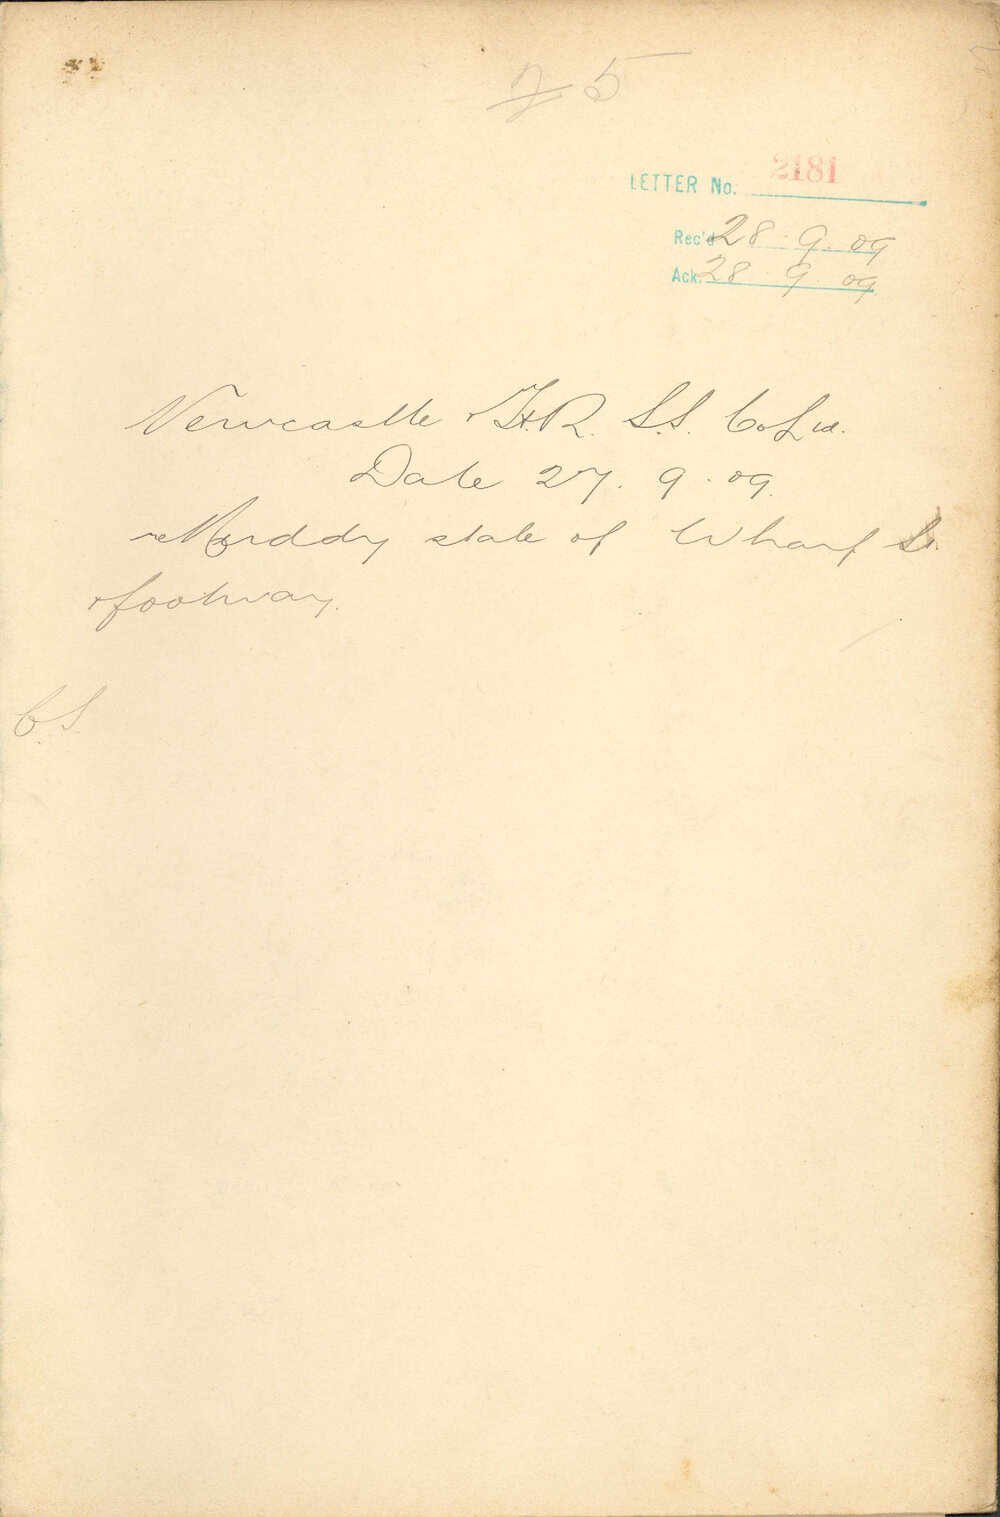 5
LETTER No. 2181
Rec'd 28.9.09
Ack. 28 9 09
Newcastle & H.R. S.S. Co Ltd.
Date 27.9.09.
re Muddy state of Wharf St
& footway.
C.S.